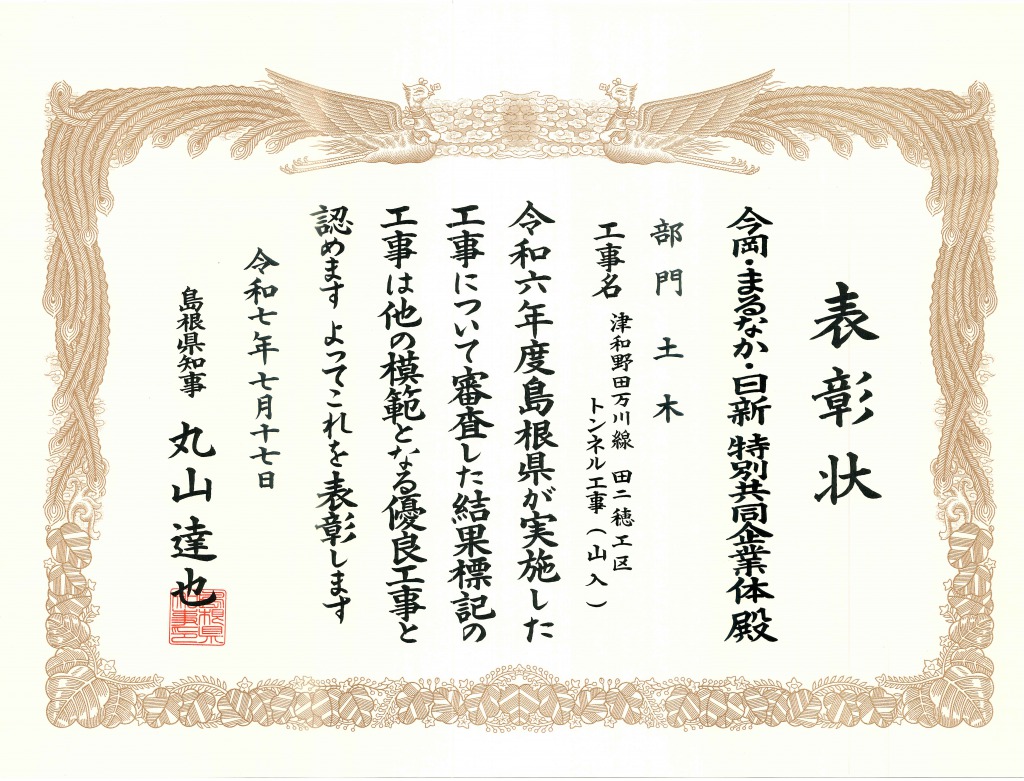 表彰状
今岡・まるなか・日新 特別共同企業体 殿
部門 土木
工事名 津和野田万川線 田二穂工区
トンネル工事(山入)
令和六年度島根県が実施した
工事について審査した結果標記の
工事は他の模範となる優良工事と
認めます よってこれを表彰します
令和七年七月十七日
島根県知事 丸山達也